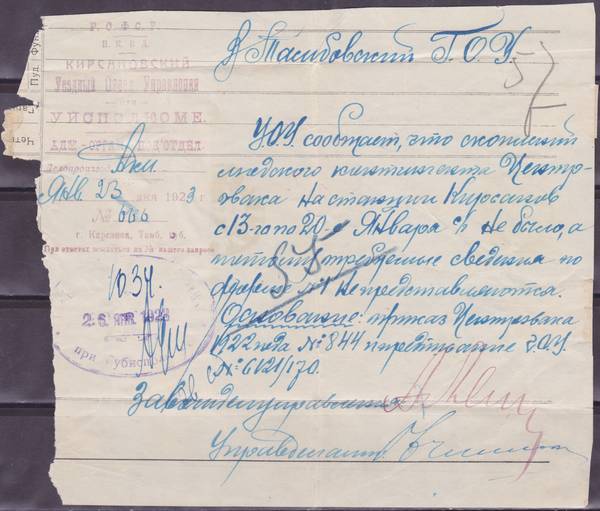 Р. С. Ф. С. Р.
Н. К. В. Д.
КИРСАНОВСКИЙ
Уездный Отдел Управления
при
УИСПОЛКОМЕ.
АДМ-ОРГАН. ПОДОТДЕЛ
Делопроизвод
Янв. 23 дня 1923
№ 666
г. Кирсанов, Тамб. губ.
При ответах ссылаться на № нашего запроса
В Тамбовский Г.О.У.
57
У.О.У. сообщает, что скоплений
людского контингента Центро-
эвака на станции Кирсанов
с 13-го по 20-е Января с/г не было, а
потому требуемые сведения по
форме №1 не представляются.
Основание: приказ Центроэвака
1922 года № 844 и предписание Г.О.У.
с № 6121/170.
55
1034.
26 ЯНВ. 1923
при Губиспол
Зав.
Управделами
Пуд. Фун
Четв